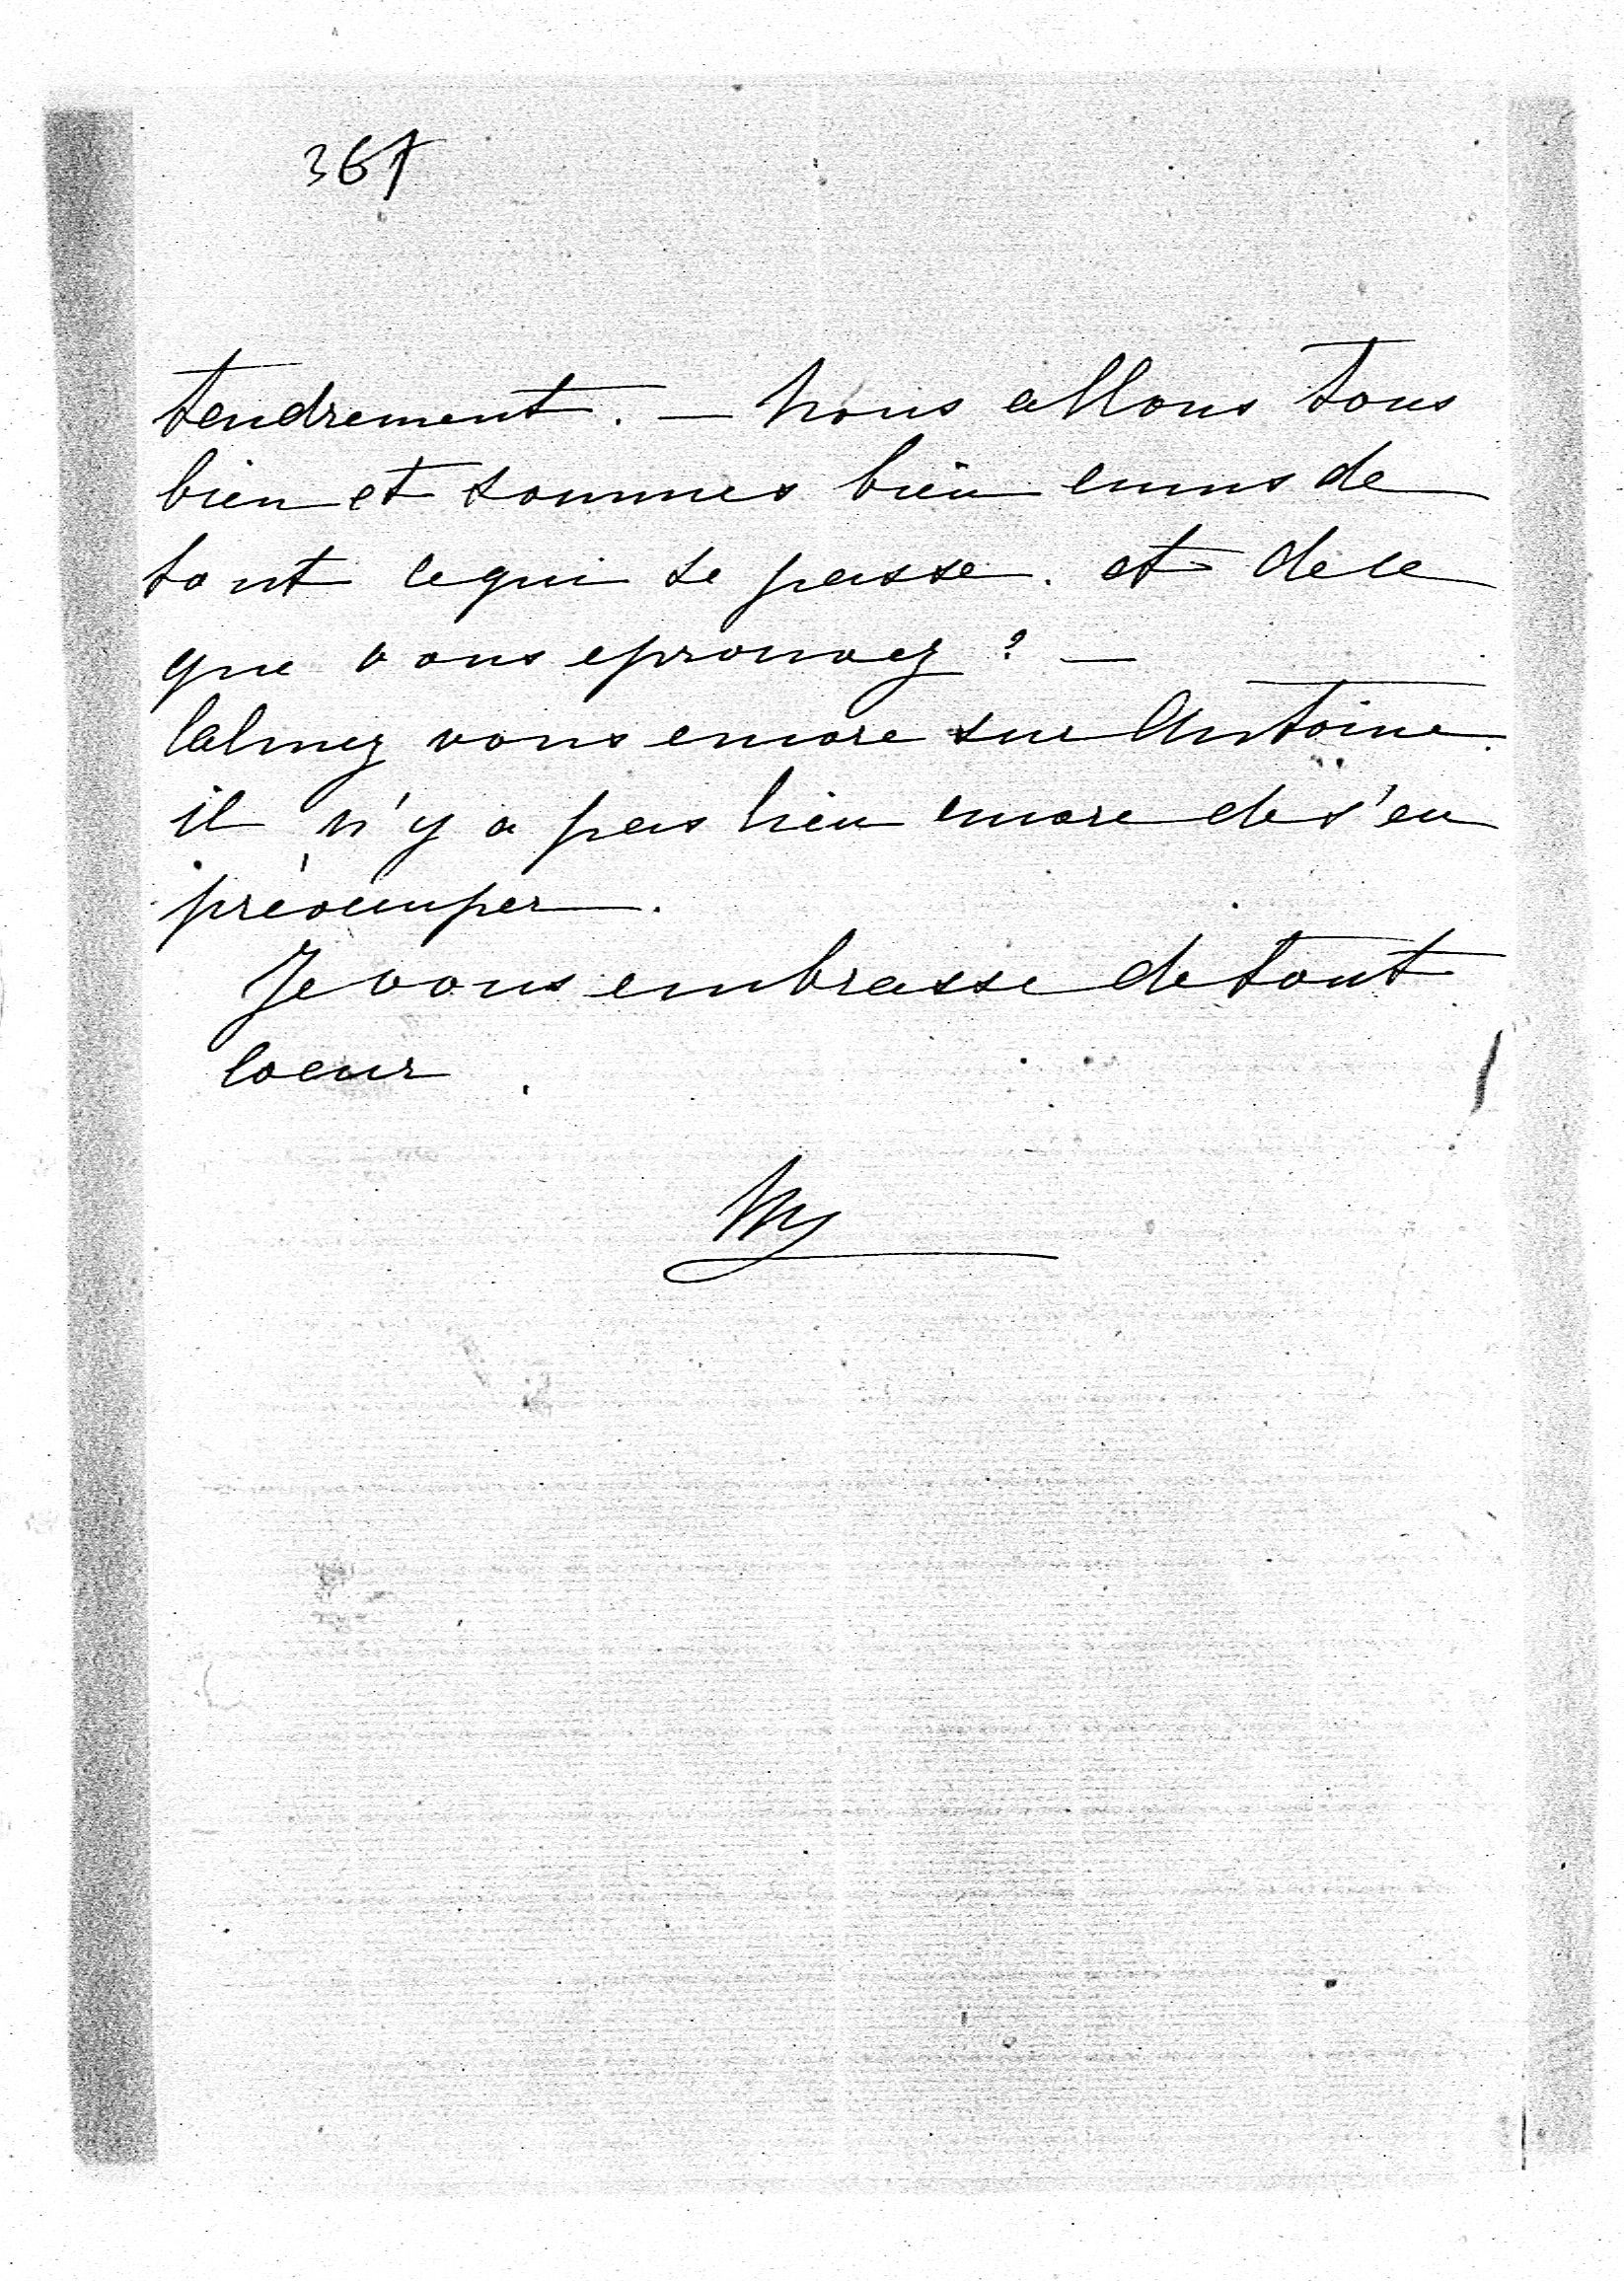 367
tendrement. — Nous allons tous
bien et sommes bien emus de
tout ce qui se passe. et de ce
que vous eprouvez ? —
Calmez vous encore sur Antoine.
il n'y a pas lieu encore de s'en
préoccuper.
Je vous embrasse de tout
Coeur.